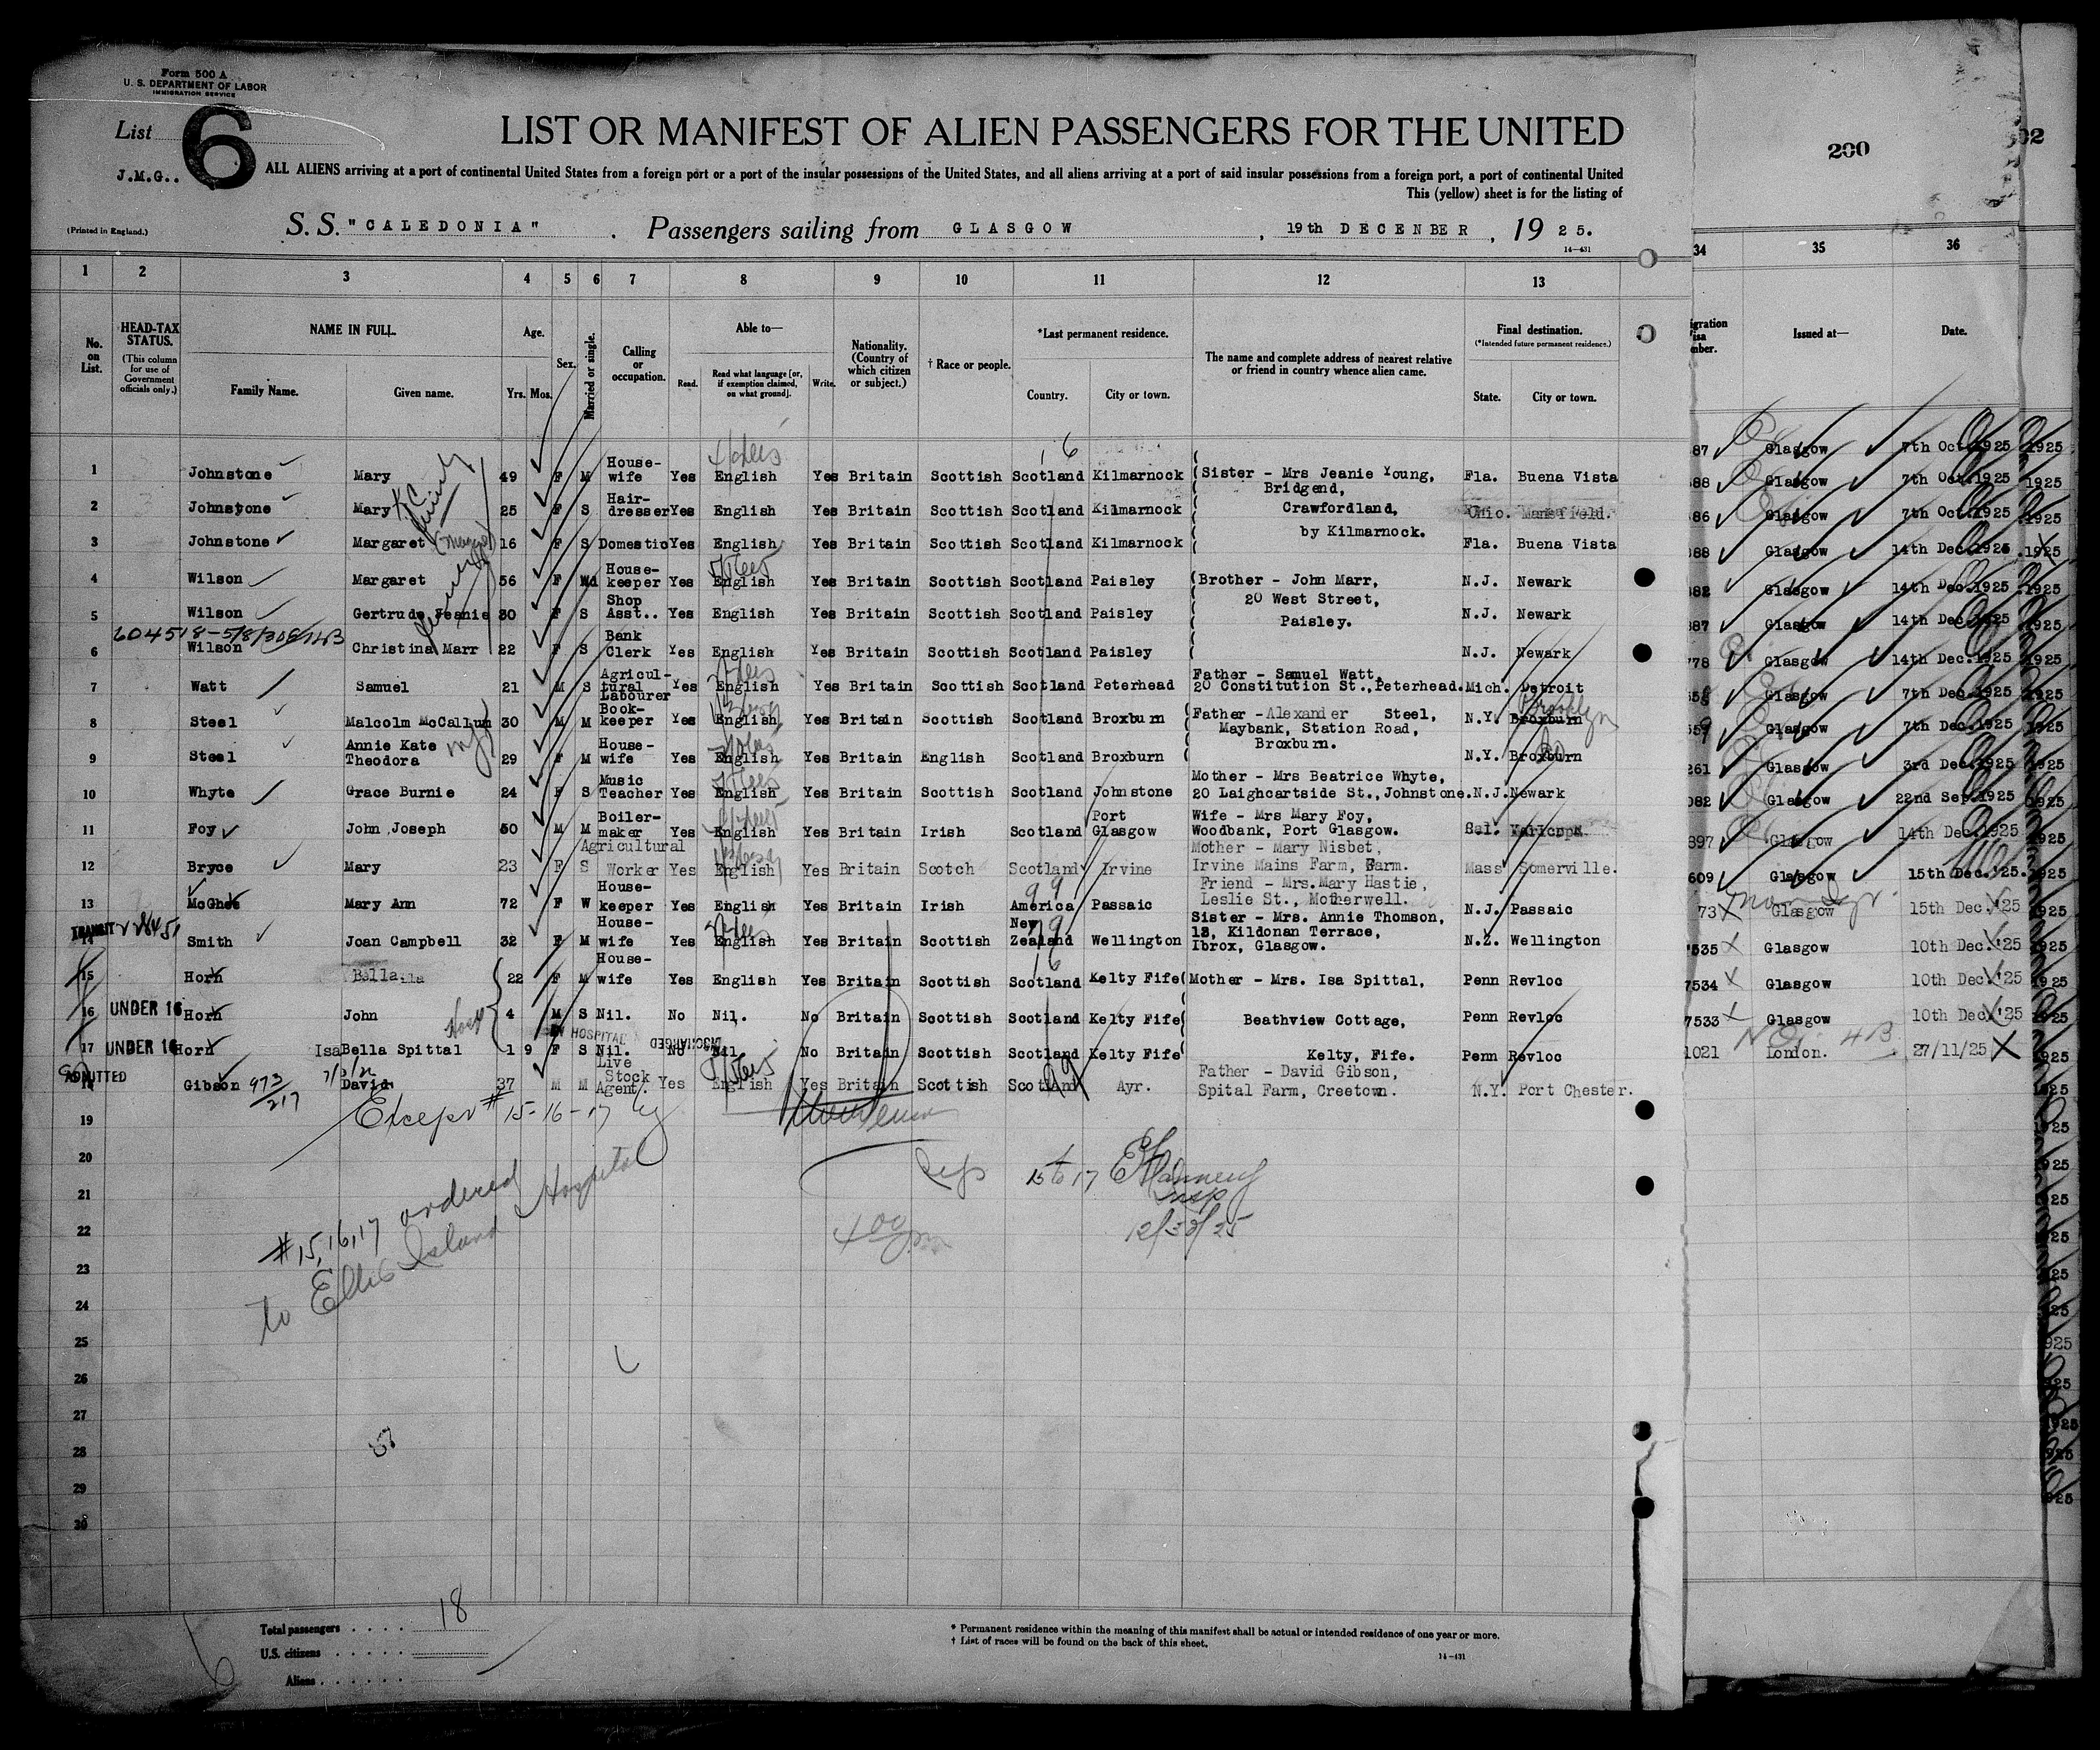 Form 500 A
U. S. DEPARTMENT OF LABOR
IMMIGRATION SERVICE
List 6
J.M.G..
LIST OR MANIFEST OF ALIEN PASSENGERS FOR THE UNITED
ALL ALIENS arriving at a port of continental United States from a foreign port or a port of the insular possessions of the United States, and all aliens arriving at a port of said insular possessions from a foreign port, a port of continental United
This (yellow) sheet is for the listing of
(Printed in England.)
S. S. "CALEDONIA" . Passengers sailing from GLASGOW , 19th DECENBER , 1925.
14—431
200
02
1 2 3 4 5 6 7 8 9 10 11 12 13 34 35 36
No. on List.
HEAD-TAX STATUS.
(This column for use of Government officials only.)
NAME IN FULL.
Family Name. Given name.
Age.
Yrs. Mos.
Sex.
Married or single.
Calling or occupation.
Able to—
Read. Read what language [or, if exemption claimed, on what ground]. Write.
Nationality. (Country of which citizen or subject.)
† Race or people.
*Last permanent residence.
Country. City or town.
The name and complete address of nearest relative or friend in country whence alien came.
Final destination.
(*Intended future permanent residence.)
State. City or town.
Issued at— Date.
1 Johnstone Mary 49 F M House-wife Yes English Yes Britain Scottish Scotland Kilmarnock (Sister - Mrs Jeanie Young, Bridgend, Fla. Buena Vista 87 Glasgow 7th Oct. 1925
2 Johnstone Mary 25 F S Hair-dresser Yes English Yes Britain Scottish Scotland Kilmarnock Crawfordland, Ohio. Mansfield. 88 Glasgow 7th Oct. 1925
3 Johnstone Margaret 16 F S Domestic Yes English Yes Britain Scottish Scotland Kilmarnock by Kilmarnock. Fla. Buena Vista 86 Glasgow 7th Oct. 1925
4 Wilson Margaret 56 F Wd House-keeper Yes English Yes Britain Scottish Scotland Paisley (Brother - John Marr, N.J. Newark 88 Glasgow 14th Dec. 1925
5 Wilson Gertrude Jeanie 30 F S Shop Asst.. Yes English Yes Britain Scottish Scotland Paisley 20 West Street, Paisley. N.J. Newark 82 Glasgow 14th Dec. 1925
6 Wilson Christina Marr 22 F S Bank Clerk Yes English Yes Britain Scottish Scotland Paisley N.J. Newark 87 Glasgow 14th Dec. 1925
7 Watt Samuel 21 M S Agricul-tural Labourer Yes English Yes Britain Scottish Scotland Peterhead Father - Samuel Watt, 20 Constitution St., Peterhead. Mich. Detroit 778 Glasgow 14th Dec. 1925
8 Steel Malcolm McCallum 30 M M Book-keeper Yes English Yes Britain Scottish Scotland Broxburn Father - Alexander Steel, Maybank, Station Road, N.Y. Broxburn Brooklyn Glasgow 7th Dec. 1925
9 Steel Annie Kate Theodora 29 F M House-wife Yes English Yes Britain English Scotland Broxburn Broxburn. N.Y. Broxburn do Glasgow 7th Dec. 1925
10 Whyte Grace Burnie 24 F S Music Teacher Yes English Yes Britain Scottish Scotland Johnstone Mother - Mrs Beatrice Whyte, 20 Laighcartside St., Johnstone. N.J. Newark 261 Glasgow 3rd Dec. 1925
11 Foy John Joseph 50 M M Boiler-maker Yes English Yes Britain Irish Scotland Port Glasgow Wife - Mrs Mary Foy, Woodbank, Port Glasgow. 082 Glasgow 22nd Sep. 1925
12 Bryce Mary 23 F S Agricultural Worker Yes English Yes Britain Scotch Scotland Irvine Mother - Mary Nisbet, Irvine Mains Farm, Farm. Mass Somerville. 897 Glasgow 14th Dec. 1925
13 McGhee Mary Ann 72 F W House-keeper Yes English Yes Britain Irish America Passaic Friend - Mrs. Mary Hastie, Leslie St., Motherwell. N.J. Passaic 609 Glasgow 15th Dec. '25.
TRANSIT 14 Smith Joan Campbell 32 F M House-wife Yes English Yes Britain Scottish New Zealand Wellington Sister - Mrs. Annie Thomson, 13, Kildonan Terrace, Ibrox, Glasgow. N.Z. Wellington 73 Glasgow 15th Dec. '25
15 Horn Bella 22 F M House-wife Yes English Yes Britain Scottish Scotland Kelty Fife (Mother - Mrs. Isa Spittal, Penn Revloc 7535 Glasgow 10th Dec. '25
16 UNDER 16 Horn John 4 M S Nil. No Nil. No Britain Scottish Scotland Kelty Fife Beathview Cottage, Penn Revloc 7534 Glasgow 10th Dec. '25
IN HOSPITAL DISCHARGED
17 UNDER 16 Horn IsaBella Spittal 1 9 F S Nil. No Nil. No Britain Scottish Scotland Kelty Fife Kelty, Fife. Penn Revloc 7533 Glasgow 10th Dec. '25
ADMITTED 18 Gibson David 37 M M Live Stock Agent. Yes English Yes Britain Scottish Scotland Ayr. Father - David Gibson, Spital Farm, Creetown. N.Y. Port Chester. 1021 London. 27/11/25
973/217
19 Except # 15-16-17
20
21 15 to 17
22 12/
23 #15,16,17 ordered
24 to Ellis Island Hospital
25
26
27
28
29
30
Total passengers . . . . 18
U.S. citizens . . . . .
Aliens . . . . . .
* Permanent residence within the meaning of this manifest shall be actual or intended residence of one year or more.
† List of races will be found on the back of this sheet.
14—431